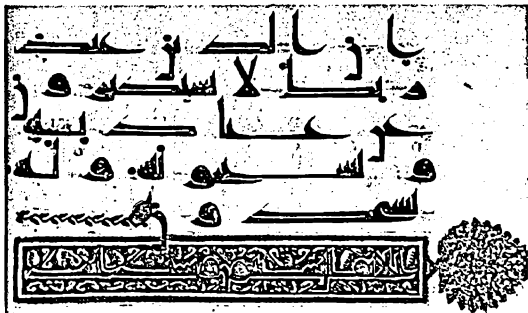 ان الذين عند
ربك لا يستكبرون
عن عبادته
و يسبحونه و له
يسجدون